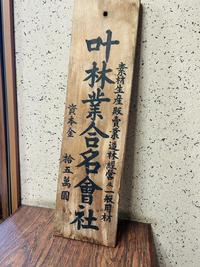 素材生産販賣業造林經營並一般用材
叶林業合名會社
資本金 拾五萬圓